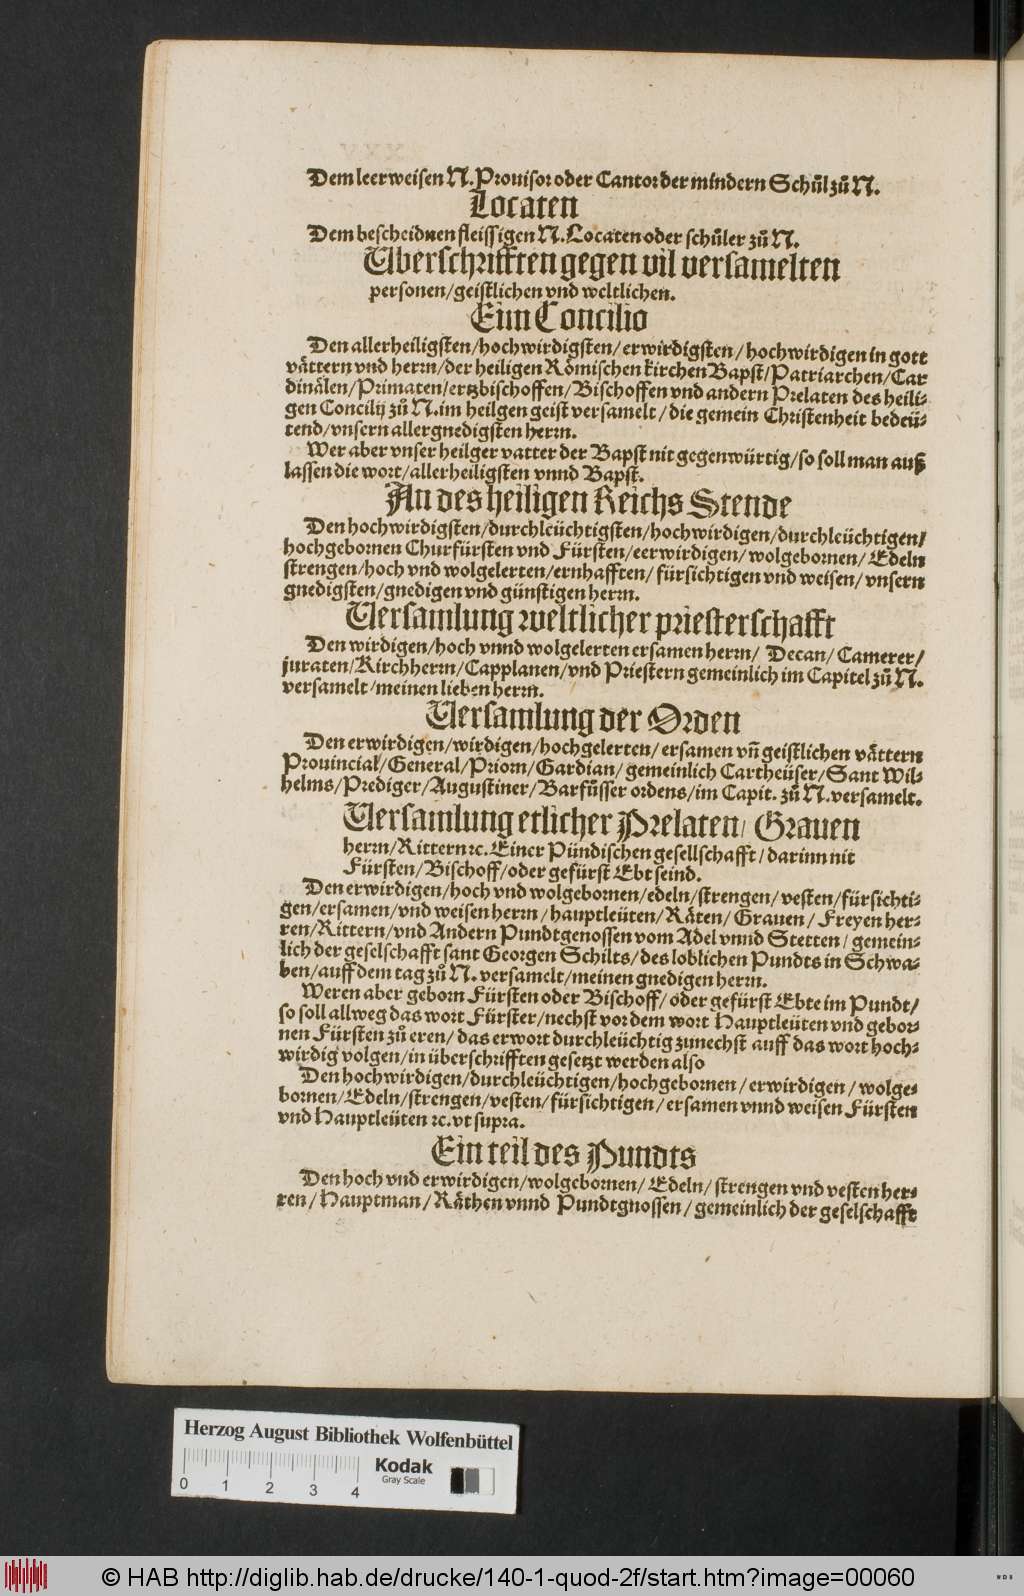 Dem leerweisen N. Prouisor oder Cantor der mindern Schůl zů N.
Locaten
Dem bescheidnen fleissigen N. Locaten oder schůler zů N.
Uberschrifften gegen vil versamelten
personen/geistlichen vnd weltlichen.
Eim Concilio
Den allerheiligsten/hochwirdigsten/erwirdigsten/hochwirdigen in gott
vättern vnd herrn/der heiligen Römischen kirchen Bapst/Patriarchen/Car
dinälen/Primaten/ertzbischoffen/Bischoffen vnd andern Prelaten des heili-
gen Concilij zů N. im heilgen geist versamelt/die gemein Christenheit bedeü-
tend/vnsern allergnedigsten herrn.
Wer aber vnser heilger vatter der Bapst nit gegenwürtig/so soll man auß
lassen die wort/allerheiligsten vnnd Bapst.
An des heiligen Reichs Stende
Den hochwirdigsten/durchleüchtigsten/hochwirdigen/durchleüchtigen/
hochgebornen Churfürsten vnd Fürsten/eerwirdigen/wolgebornen/Edeln
strengen/hoch vnd wolgelerten/ernhafften/fürsichtigen vnd weisen/vnsern
gnedigsten/gnedigen vnd günstigen herrn.
Versamlung weltlicher priesterschafft
Den wirdigen/hoch vnnd wolgelerten ersamen herrn/ Decan/Camerer/
juraten/Kirchherrn/Capplanen/vnd Priestern gemeinlich im Capitel zů N.
versamelt/meinen lieben herrn.
Versamlung der Orden
Den erwirdigen/wirdigen/hochgelerten/ersamen vñ geistlichen vättern
Prouincial/General/Priorn/Gardian/gemeinlich Cartheüser/Sant Wil-
helms/Prediger/Augustiner/Barfůsser ordens/im Capit. zů N. versamelt.
Versamlung etlicher Prelaten/ Grauen
herrn/Rittern ꝛc. Einer Pündischen gesellschafft/darinn nit
Fürsten/Bischoff/oder gefürst Ebt seind.
Den erwirdigen/hoch vnd wolgebornen/edeln/strengen/vesten/fürsichti-
gen/ersamen/vnd weisen herrn/hauptleüten/Räten/Grauen/Freyen her-
ren/Rittern/vnd Andern Pundtgenossen vom Adel vnnd Stetten/gemein-
lich der geselschafft sant Georgen Schilts/des loblichen Pundts in Schwa-
ben/auff dem tag zů N. versamelt/meinen gnedigen herrn.
Weren aber geborn Fürsten oder Bischoff/oder gefürst Ebte im Pundt/
so soll allweg das wort Fürster/nechst vor dem wort Hauptleüten vnd gebor-
nen Fürsten zů eren/das erwort durchleüchtig zunechst auff das wort hoch-
wirdig volgen/in überschrifften gesetzt werden also
Den hochwirdigen/durchleüchtigen/hochgebornen/erwirdigen/wolge-
bornen/Edeln/strengen/vesten/fürsichtigen/ersamen vnnd weisen Fürsten
vnd Hauptleüten ꝛc. vt supra.
Ein teil des Pundts
Den hoch vnd erwirdigen/wolgebornen/Edeln/strengen vnd vesten her-
ren/Hauptman/Räthen vnnd Pundtgnossen/gemeinlich der geselschafft
Herzog August Bibliothek Wolfenbüttel
Kodak
Gray Scale
0 1 2 3 4
© HAB http://diglib.hab.de/drucke/140-1-quod-2f/start.htm?image=00060